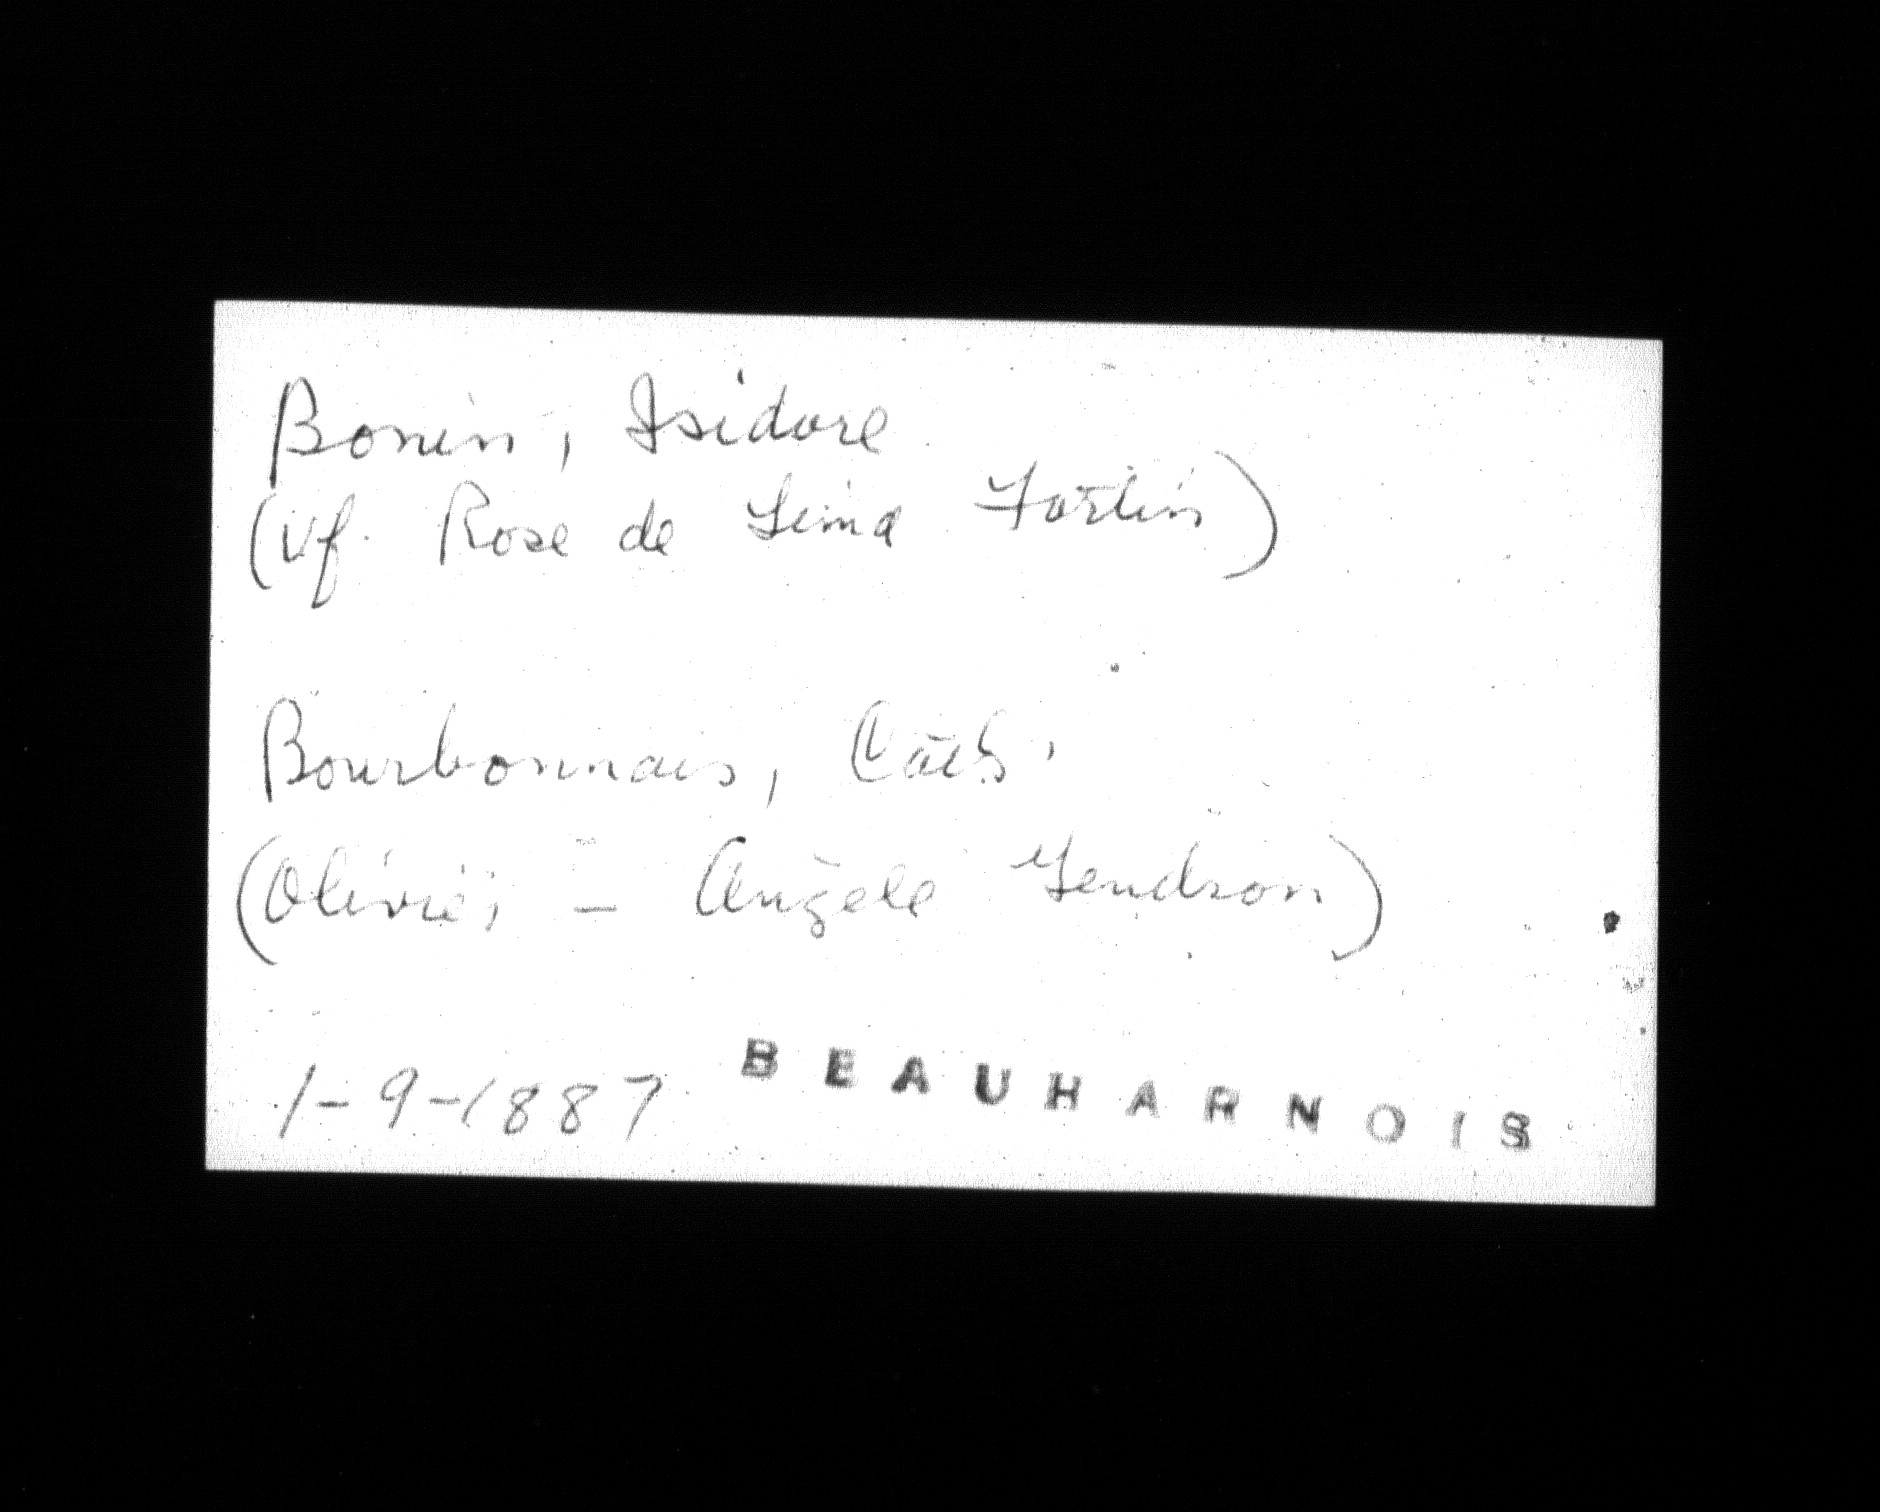 Bonin, Isidore
(Vf. Rose de Lima Fortin)
Bourbonnais, Cath.
(Olivier - Angèle Gendron)
1-9-1887 BEAUHARNOIS